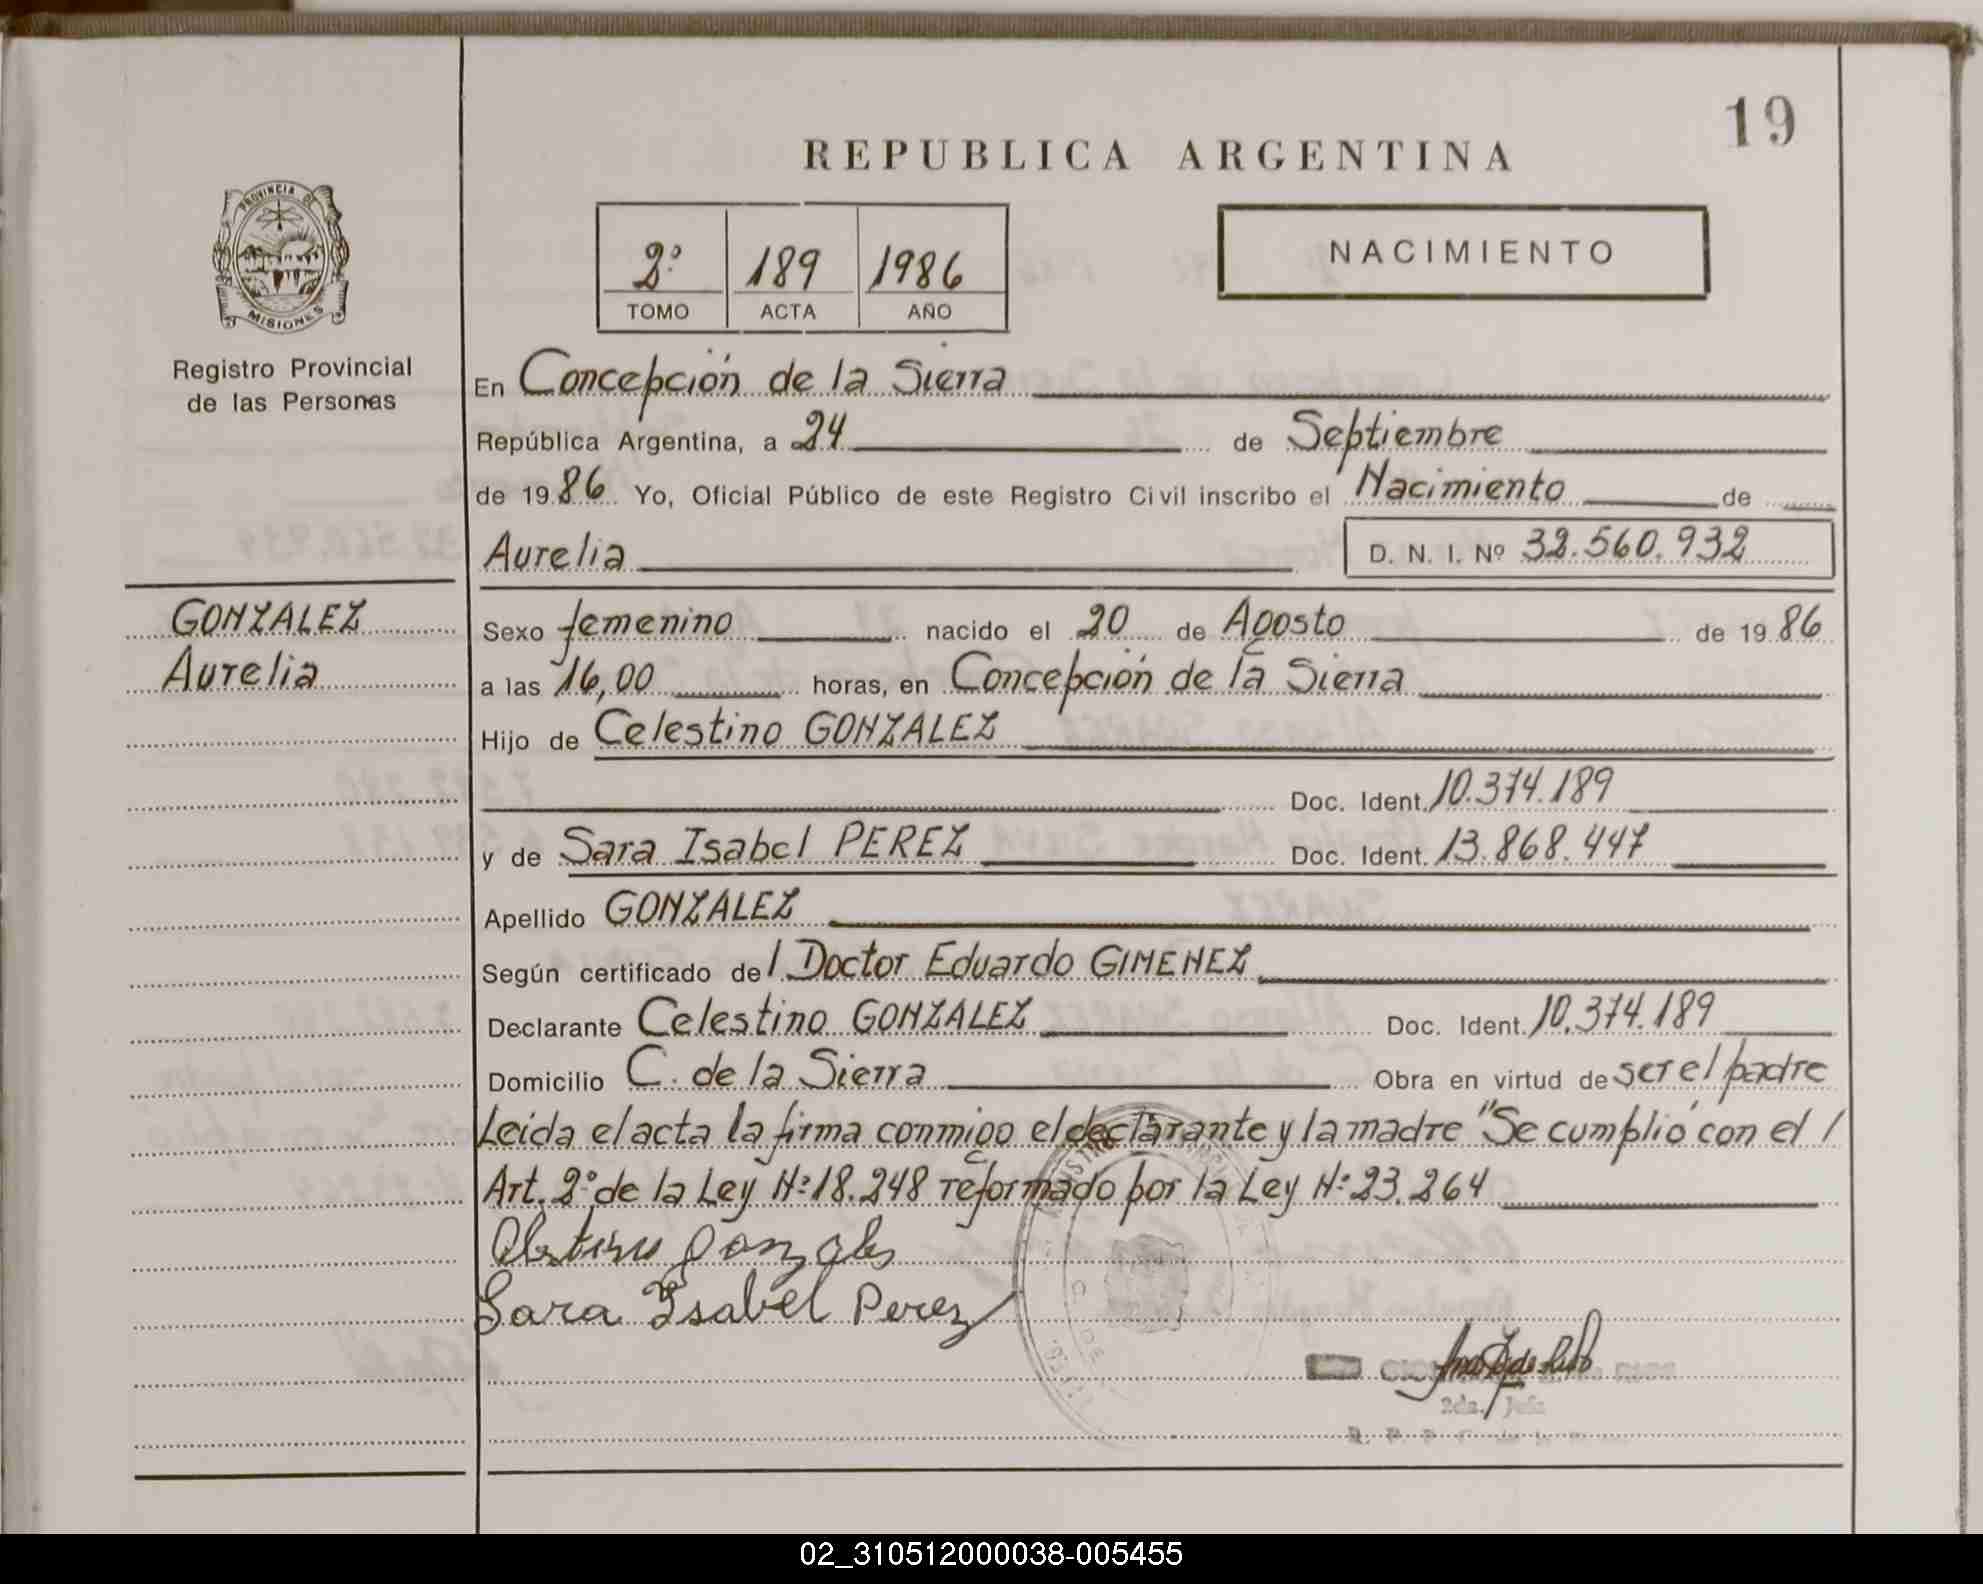 19
REPUBLICA ARGENTINA
PROVINCIA DE
MISIONES
Registro Provincial
de las Personas
2º 189 1986
TOMO ACTA AÑO
NACIMIENTO
En Concepción de la Sierra
República Argentina, a 24 de Septiembre
de 1986 Yo, Oficial Público de este Registro Civil inscribo el Nacimiento de
Aurelia D. N. I. Nº 32.560.932
GONZALEZ
Aurelia
Sexo femenino nacido el 20 de Agosto de 1986
a las 16,00 horas, en Concepción de la Sierra
Hijo de Celestino GONZALEZ
Doc. Ident. 10.374.189
y de Sara Isabel PEREZ Doc. Ident. 13.868.447
Apellido GONZALEZ
Según certificado del Doctor Eduardo GIMENEZ
Declarante Celestino GONZALEZ Doc. Ident. 10.374.189
Domicilio C. de la Sierra Obra en virtud de ser el padre
Leída el acta la firma conmigo el declarante y la madre "Se cumplió con el /
Art. 2º de la Ley Nº 18.248 reformado por la Ley Nº 23.264
Sara Isabel Perez
02_310512000038-005455